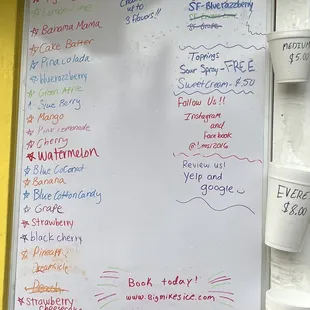 Banana Mama
Cake Batter
Pina colada
bluerazzberry
Green Apple
Blue Berry
Mango
Pink lemonade
Cherry
Watermelon
Blue Coconut
Banana
Blue Cotton Candy
Grape
Strawberry
black cherry
Pineapple
Dreamsicle
Strawberry
Cheesecake
up to
3 flavors!!
SF-Bluerazzberry
SF-Grape
Toppings
Sour Spray-FREE
Sweet Cream-$.50
Follow Us!!
Instagram
and
Facebook
Review us!
Yelp and
google
Book today!
www.BigMikesice.com
MEDIUM
$5.0
EVERE
$8.00